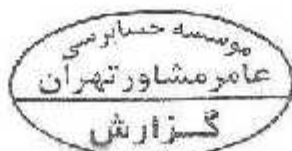 موسسه حسابرسی
عامر مشاور تهران
گزارش